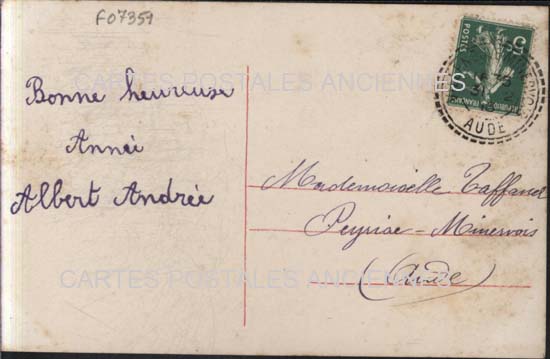 F07359
Bonne heureuse
Année
Albert Andrée
Mademoiselle Taffanel
Peyriac-Minervois
(Aude)
5c
POSTES
REPUBLIQUE FRANÇAISE
AUDE
CARTES POSTALES ANCIENNES
CARTES POSTALES ANCIENNES